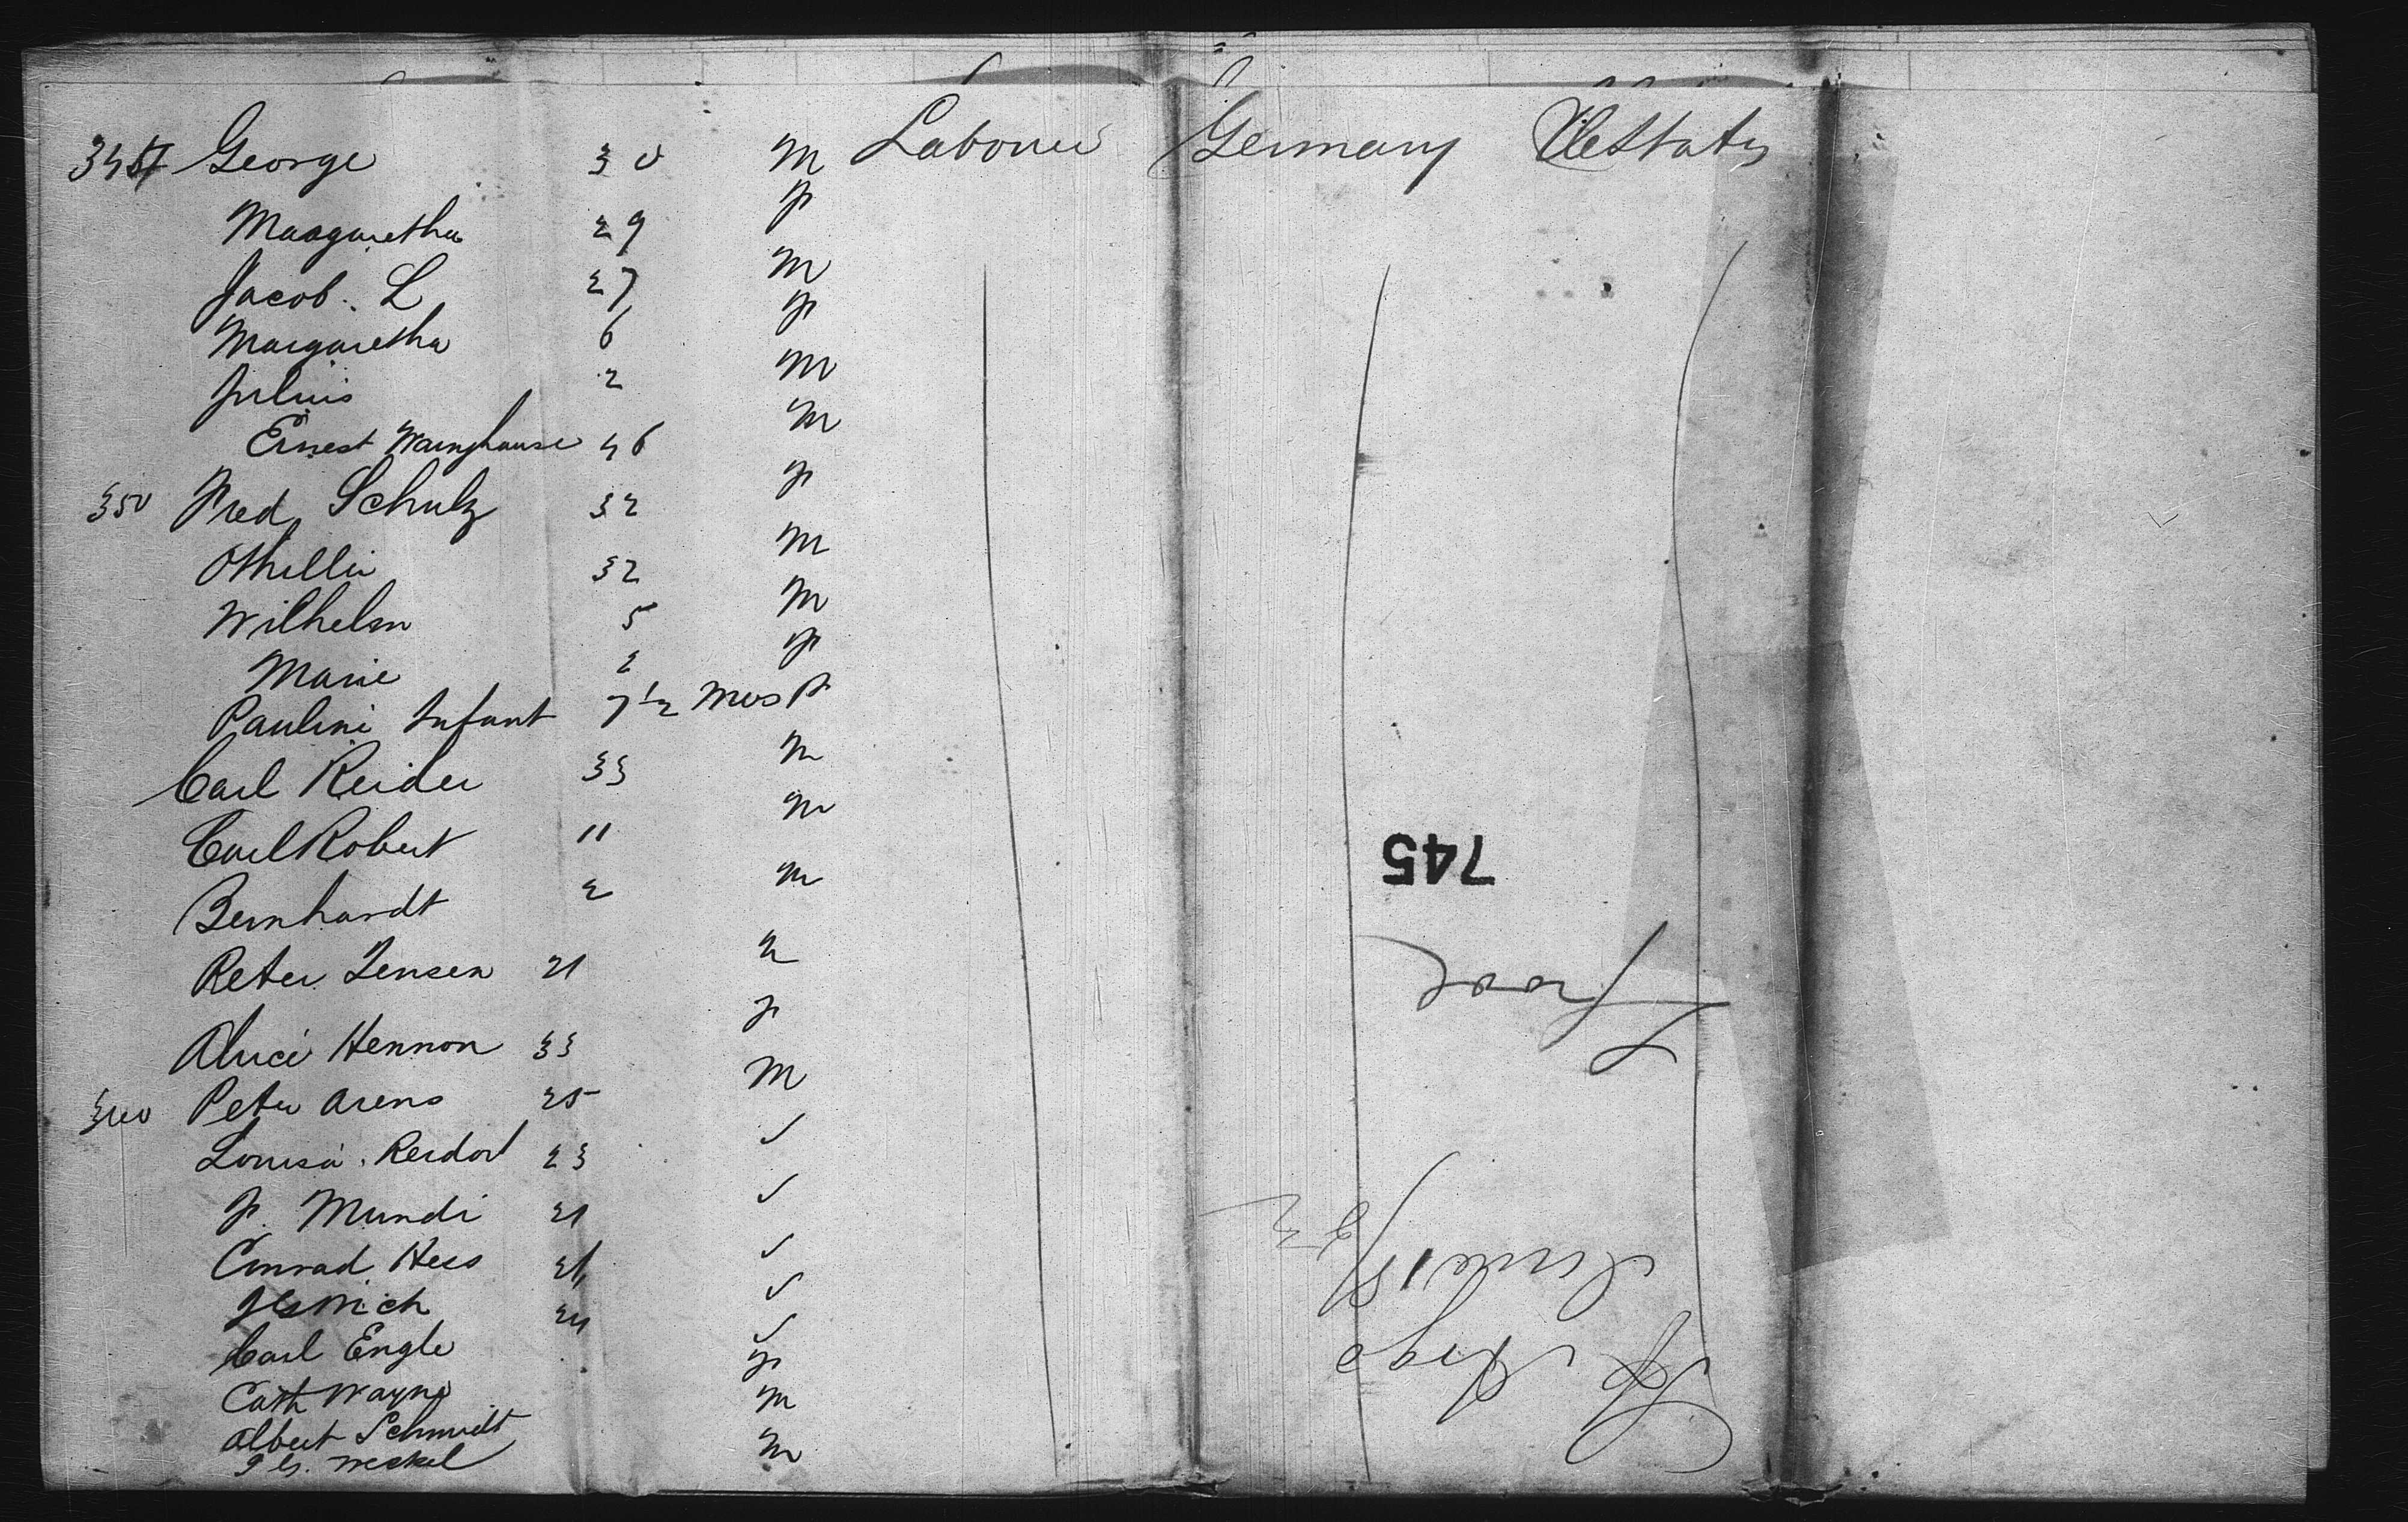 George 30 M Labourer Germany U States
Maagaretha 29 F
Jacob. L 27 M
Margaretha 6 F
Julius 2 M
Ernest Warnghause 46 M
350 Fred Schulz 32 F
Othellia 32 M
Wilhelm 5 M
Marie 2 F
Pauline Infant 7 1/2 Mos F
Carl Reider 33 M
Carl Robert 11 M
Bernhardt 2 M
Peter Jensen 21 M
Alvice Hennon 33 F
360 Peter Arens 25 M
Louisa Reidorf 23 ✓
F. Mundi 21 ✓
Conrad Hess 26 ✓
24 ✓
Carl Engle ✓
Cath Wayne F
Albert Schmidt M
Weckel M
745
June 15/